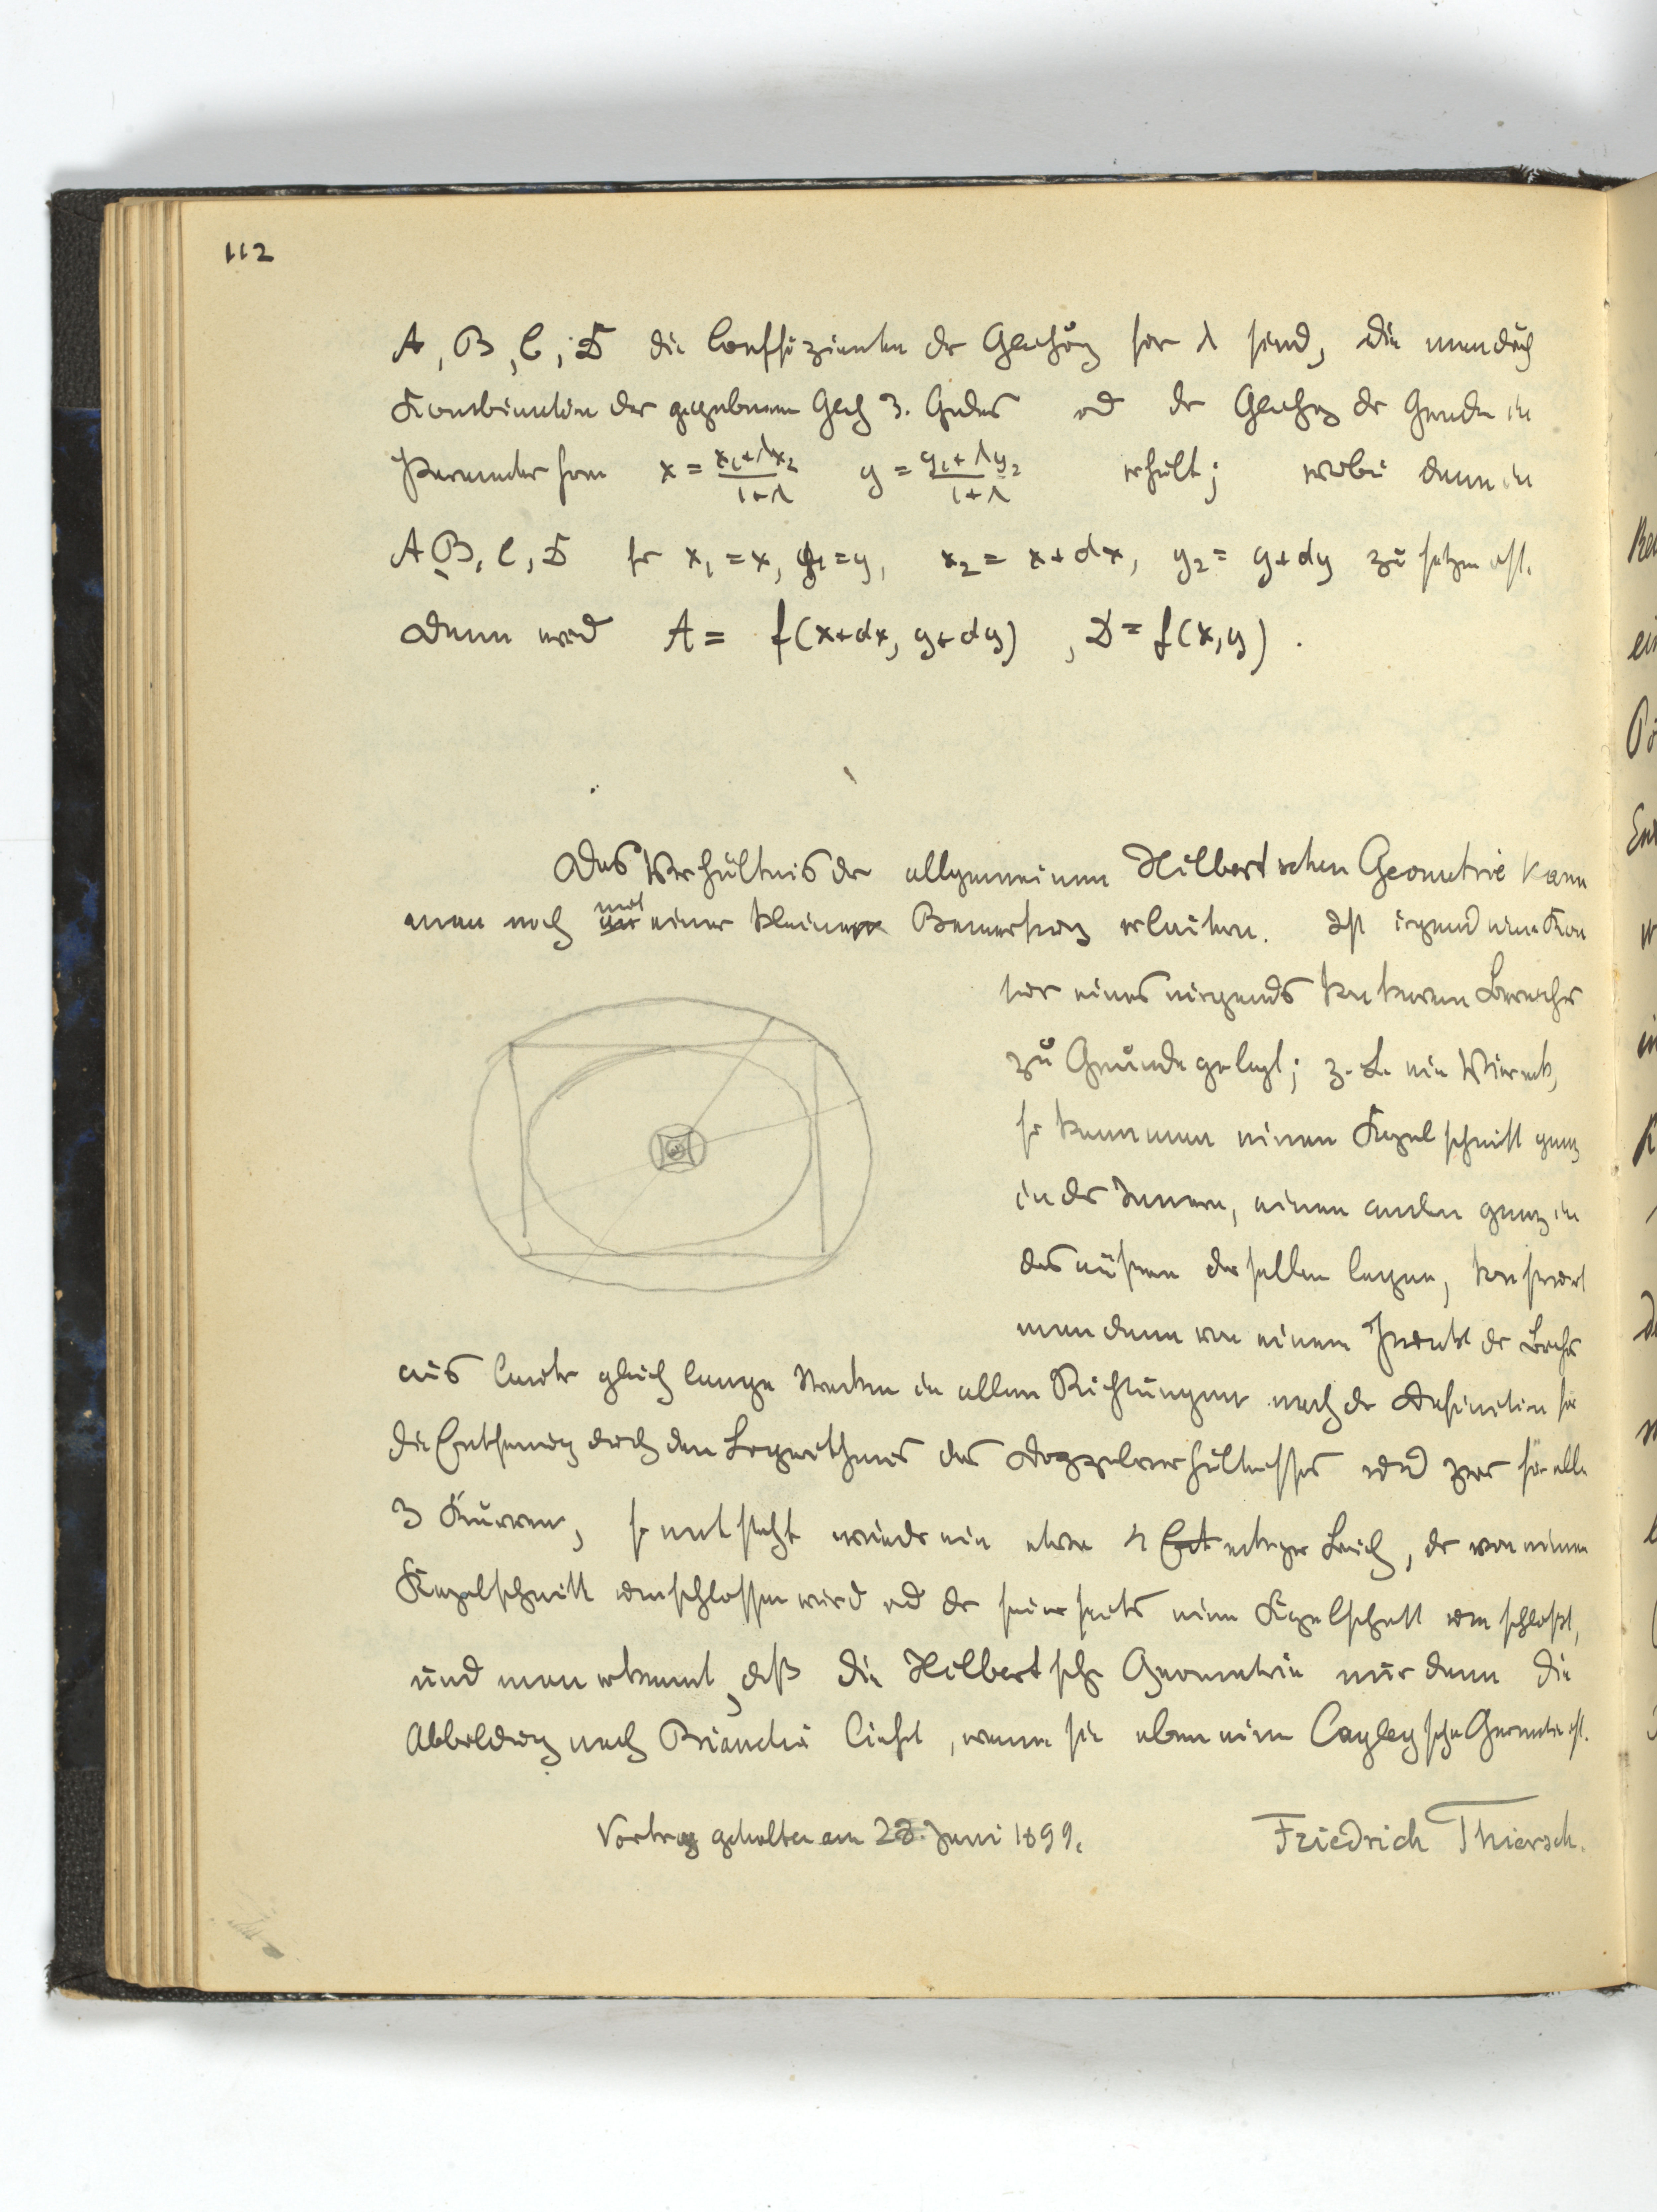 112
A, B, C, D die Coeffizienten der Gleichung für λ sind, die man durch
Kombination der gegebenen Glch 3. Grades und der Gleichung der Geraden in
Parameterform x = (x₁+λx₂)/(1+λ) y = (y₁+λy₂)/(1+λ) erhält; wobei dann in
A, B, C, D für x₁ = x, y₁ = y, x₂ = x + dx, y₂ = y + dy zu setzen ist.
Dann wird A = f(x+dx, y+dy), D = f(x,y).
Das Verhältnis der allgemeinen Hilbertschen Geometrie kann
man noch mit einer kleinen Bemerkung erläutern. Ist irgend eine Kon
tur eines nirgends konkaven Bereichs
zu Grunde gelegt; z. B. ein Viereck,
so kann man einen Kegelschnitt ganz
in das Innere, einen andern ganz in
das äußere desselben legen, konstruiert
man dann von einem Punkt des Bereichs
aus lauter gleich lange Strecken in allen Richtungen nach der Definition für
die Entfernung durch den Logarithmus des Doppelverhältnisses und zwar für alle
3 Kurven, so entsteht wieder ein etwa 4 eckiger Bereich, der von einem
Kegelschnitt umschlossen wird und der seinerseits einen Kegelschnitt umschließt,
und man erkennt, daß die Hilbertsche Geometrie nur dann die
Abbildung nach Bianchi liefert, wenn sie eben eine Cayleysche Geometrie ist.
Vortrag gehalten am 28. Juni 1899.
Friedrich Thiersch.